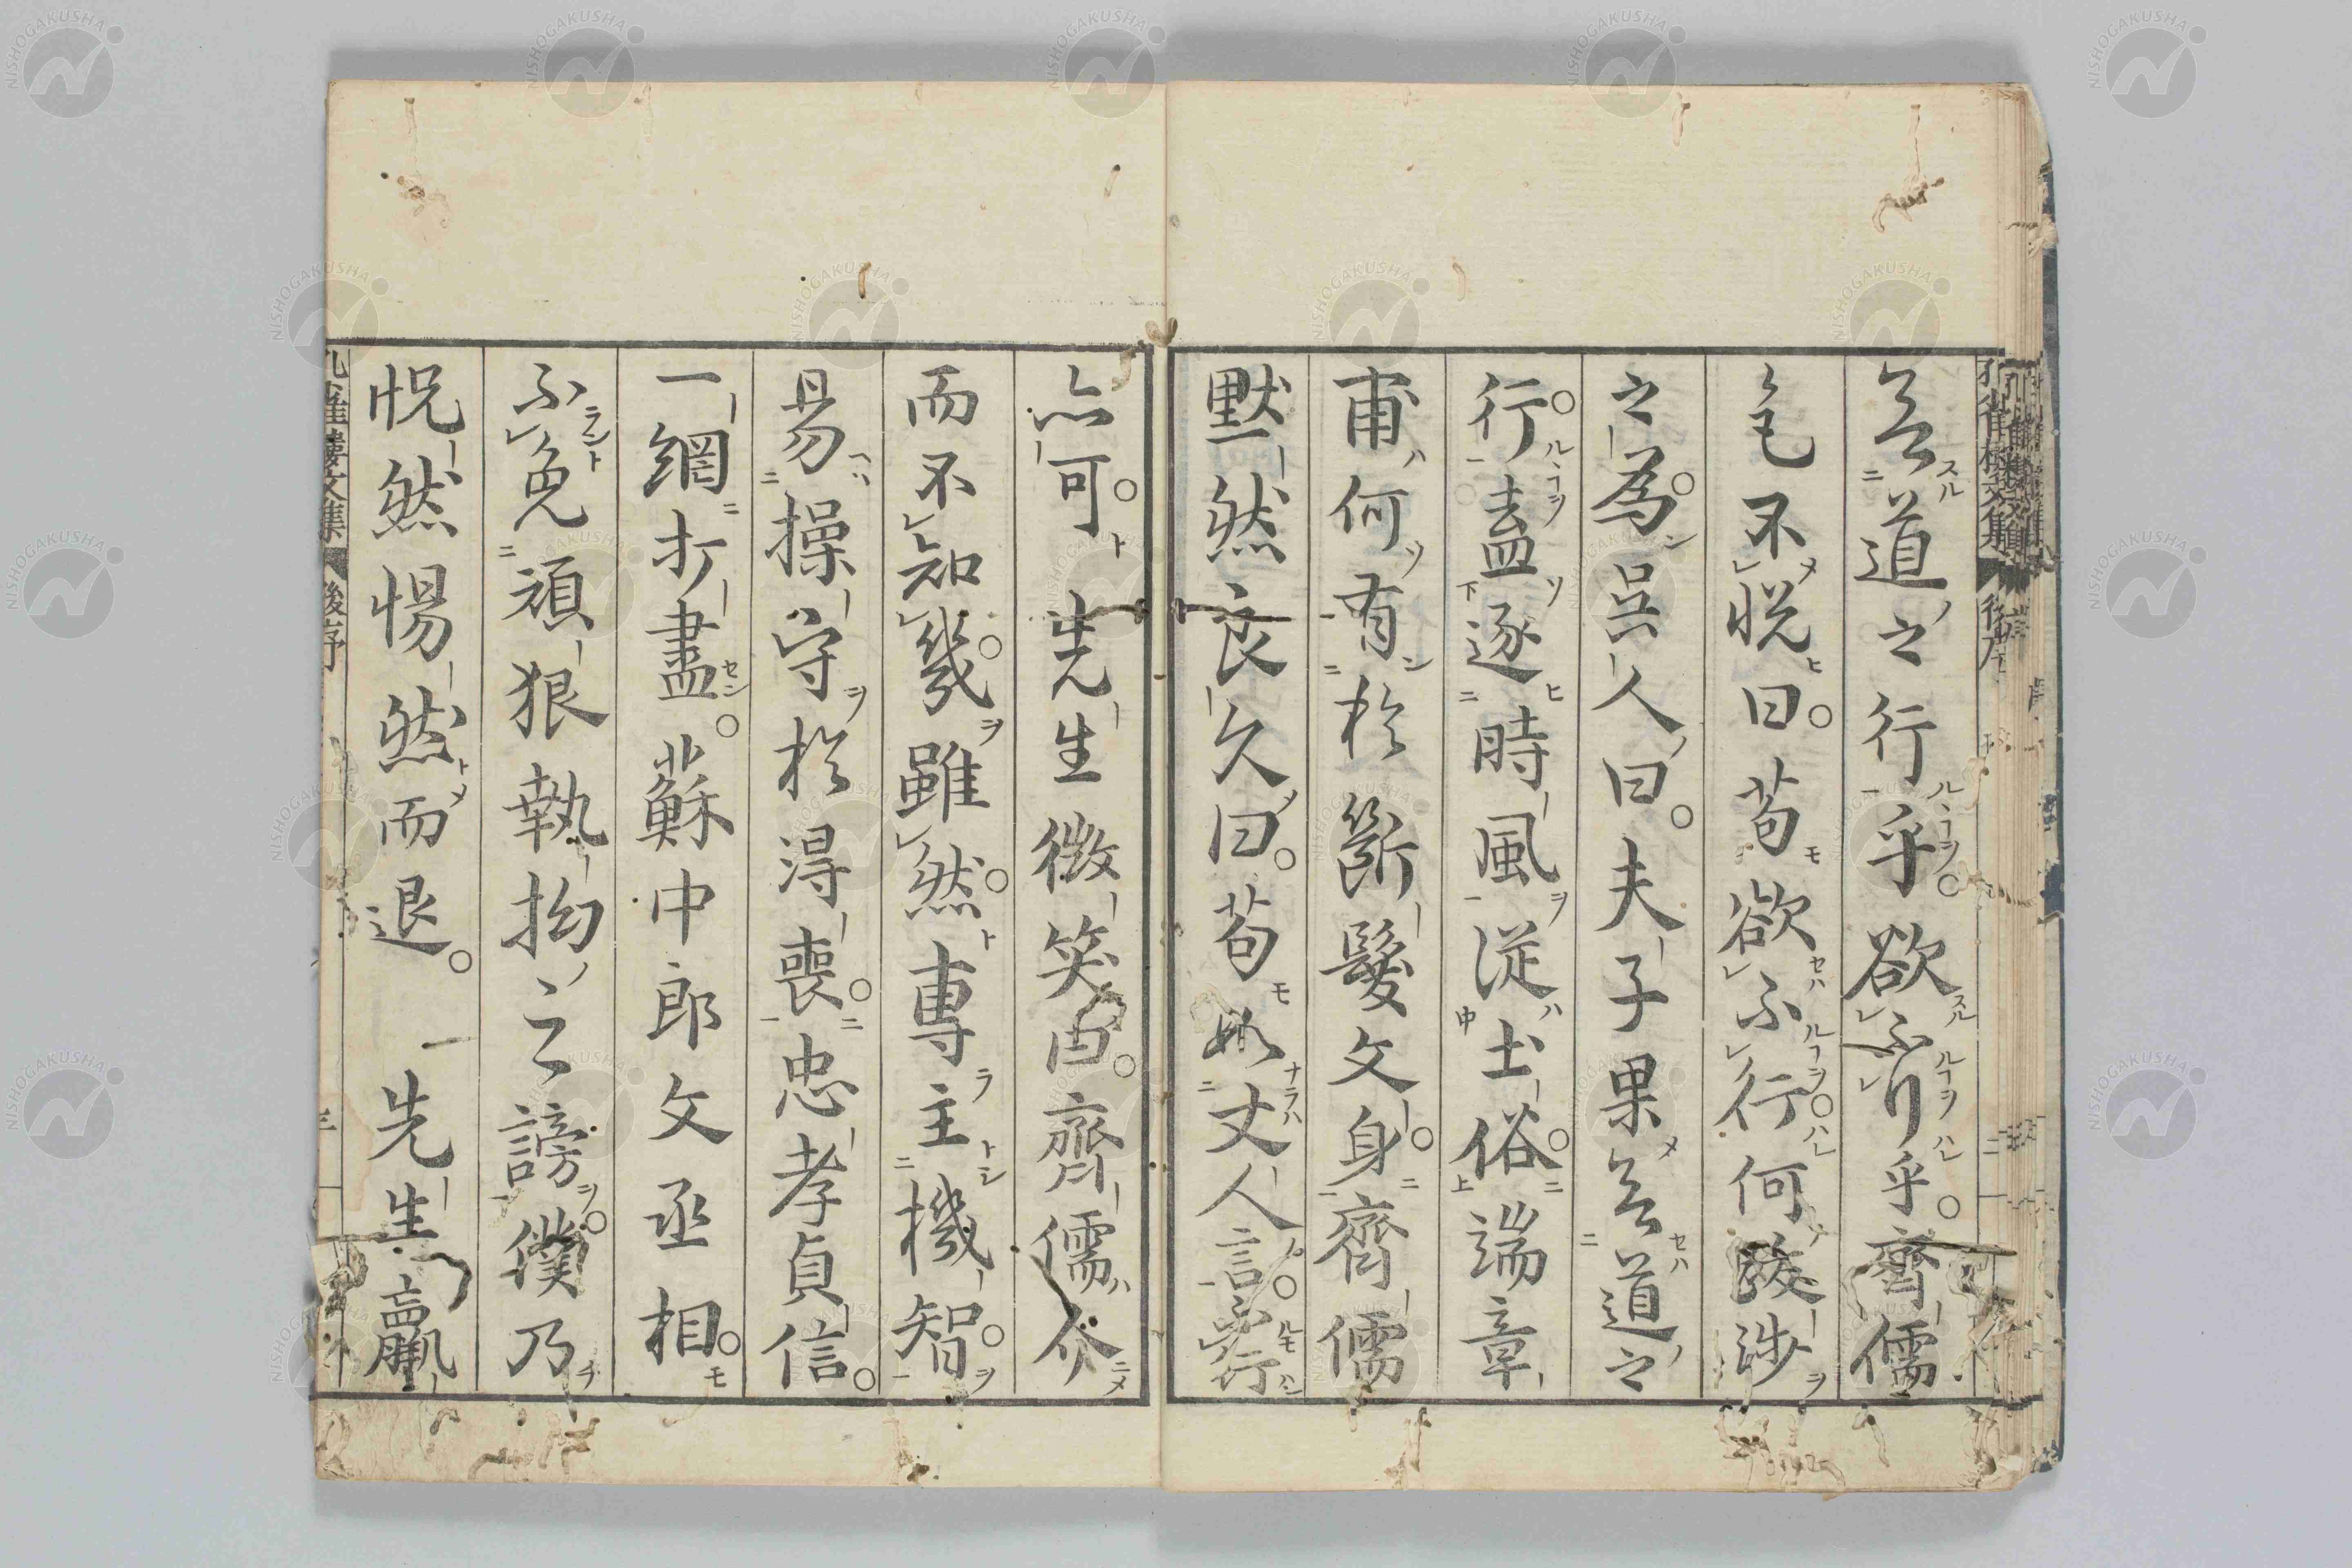 道之行乎欲不行乎齊儒
色不悅曰苟欲不行何跋涉
之為吳人曰夫子果道之
行盍逐時風從土俗端章
甫何有於斷髮文身齊儒
默然良久曰苟如丈人言不行
亦可先生微笑曰齊儒介
而不知幾雖然專主機智
易操守於得喪忠孝貞信
一網打盡蘇中郎文丞相
不免頑狠執拗之謗僕乃
怳然惕然而退 一先生贏
孔雀樓文集 後序